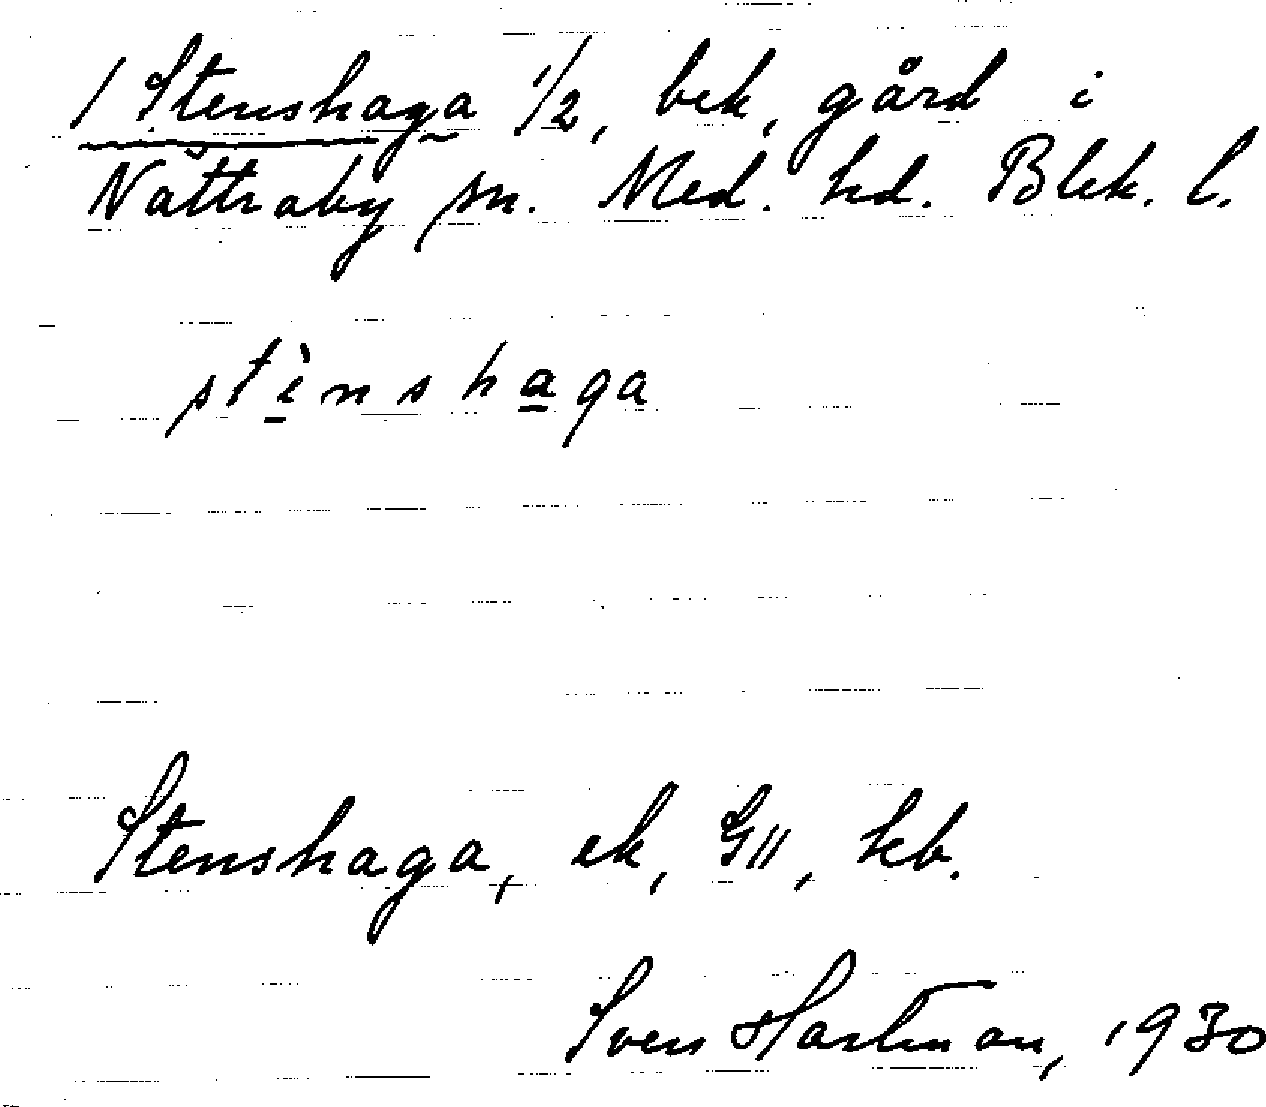 / Stenshaga 1/2, bek, gård i
Nättraby sn. Med. hd. Blek. l.
stìnshaga
Stenshaga, ek, GII, kb.
Sven Hartman, 1930